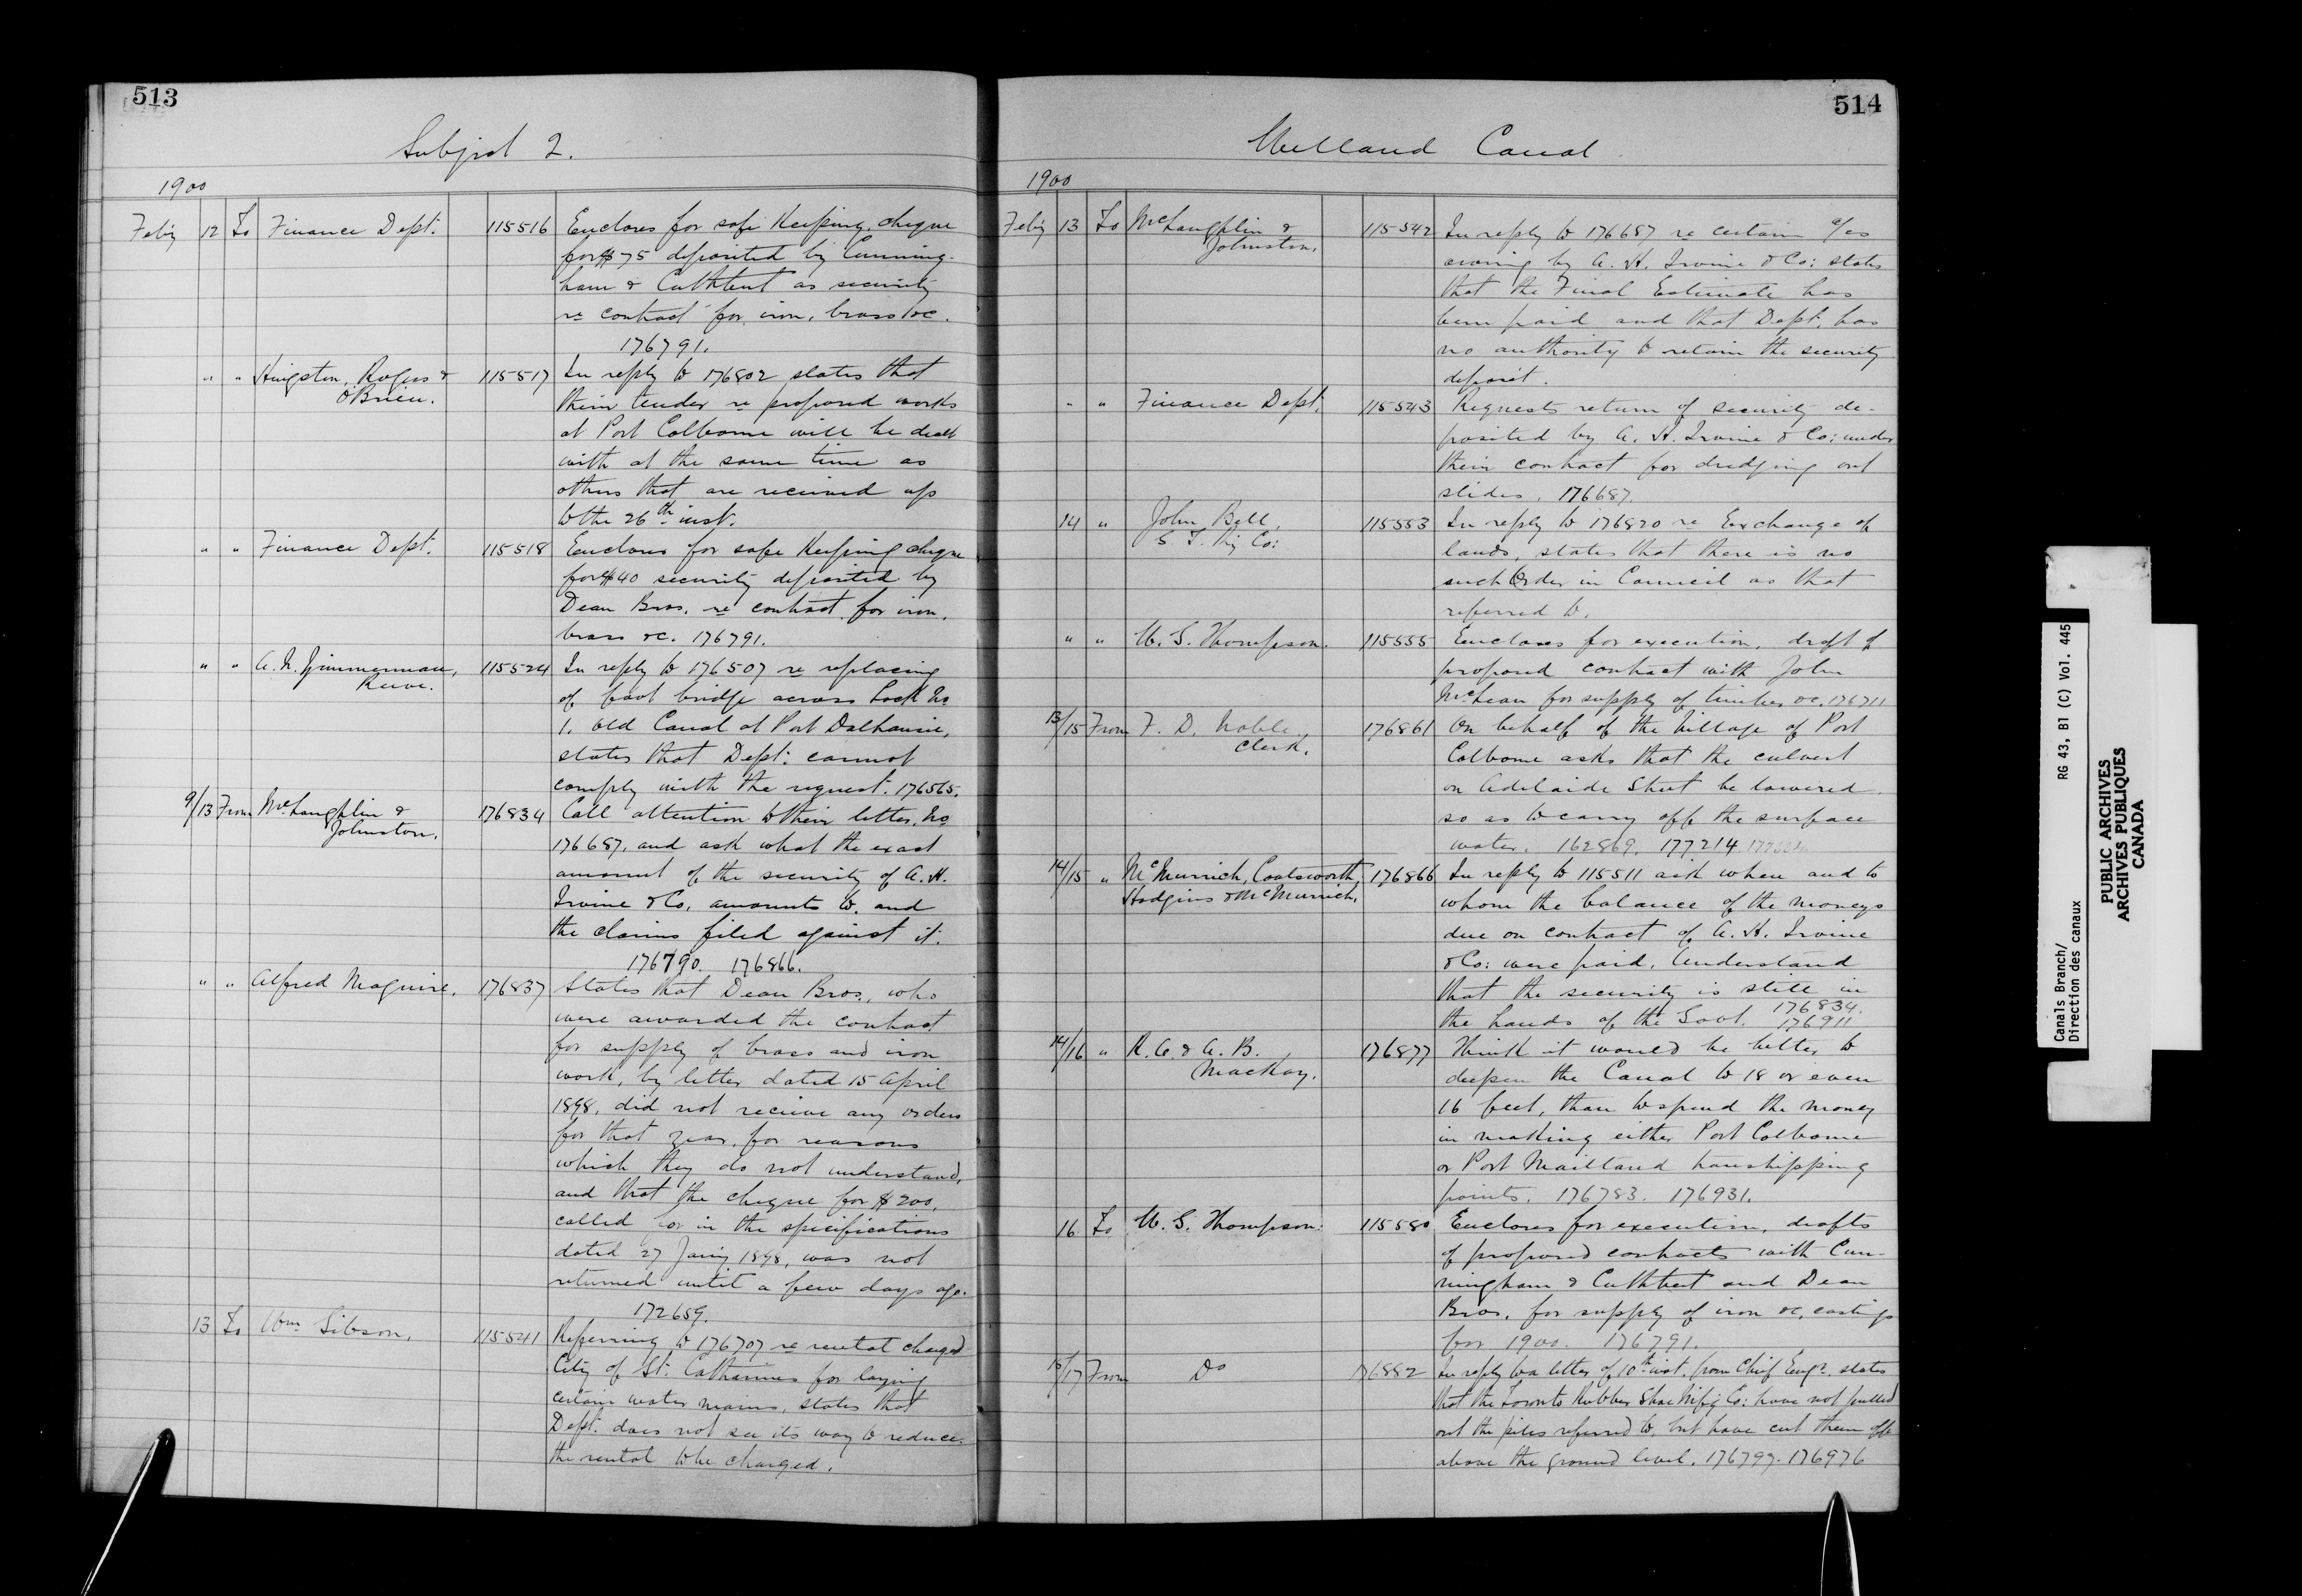 513
Subject 2.
1900
Feby 12 To Finance Dept. 115516 Encloses for safe Keeping, cheque
for $75 deposited by Cunning-
ham & Cuthbert as security
re contract for iron, brass &c.
176791.
" " Hingston, Rogers & 115517 In reply to 176802 states that
O'Brien. their tender re proposed works
at Port Colborne will be dealt
with at the same time as
others that are received up
to the 26th inst.
" " Finance Dept. 115518 Encloses for safe Keeping cheque
for $40 security deposited by
Dean Bros. re contract for iron,
brass &c. 176791.
" " A. N. Zimmerman, 115524 In reply to 176507 re replacing
Reeve. of foot bridge across Lock No
1, Old Canal at Port Dalhousie,
states that Dept. cannot
comply with the request. 176565.
9/13 From McLaughlin & 176834 Call attention to their letter, No
Johnston. 176687, and ask what the exact
amount of the security of A. H.
Irvine & Co. amounts to, and
the claims filed against it.
176790. 176866.
" " Alfred Maguire. 176837 States that Dean Bros., who
were awarded the contract
for supply of brass and iron
work, by letter dated 15 April
1898, did not receive any orders
for that year, for reasons
which they do not understand,
and that the cheque for $200,
called for in the specifications
dated 27 Jany 1898, was not
returned until a few days ago.
172659.
13 To Wm Gibson. 115541 Referring to 176707 re rental charged
City of St. Catharines for laying
certain water mains, states that
Dept. does not see its way to reduce
the rental to be charged.
514
Welland Canal
1900
Feby 13 To McLaughlin & 115542 In reply to 176687 re certain a/cs
Johnston. owing by A. H. Irvine & Co: states
that the Final Estimate has
been paid and that Dept. has
no authority to retain the security
deposit.
" " Finance Dept. 115543 Requests return of security de-
posited by A. H. Irvine & Co: under
their contract for dredging out
slides. 176687.
14 " John Bell, 115553 In reply to 176820 re Exchange of
G. T. Ry Co: lands, states that there is no
such Order in Council as that
referred to.
" " W. G. Thompson. 115555 Encloses for execution, draft of
proposed contract with John
McLean for supply of timber &c. 176711
13/15 From F. D. Noble 176861 On behalf of the Village of Port
Clerk. Colborne asks that the culvert
on Adelaide Street be lowered
so as to carry off the surface
water. 162869. 177214
14/15 " McMurrich, Coatsworth, 176866 In reply to 115511 ask when and to
Hodgins & McMurrich. whom the balance of the moneys
due on contract of A. H. Irvine
& Co: were paid. Understand
that the security is still in
the hands of the Govt. 176834.
176911
14/16 " R. O. & A. B. 176877 Think it would be better to
MacKay. deepen the Canal to 18 or even
16 feet, than to spend the money
in making either Port Colborne
or Port Maitland transhipping
points. 176783. 176931.
16 To W. G. Thompson. 115580 Encloses for execution, drafts
of proposed contracts with Cun-
ningham & Cuthbert and Dean
Bros. for supply of iron &c, castings
for 1900. 176791.
16/17 From Do 176882 In reply to a letter of 10th inst. from Chief Engr. states
that the Toronto Rubber Shoe Mnfg Co: have not pulled
out the piles referred to, but have cut them off
above the ground level. 176797. 176976
Canals Branch/ RG 43, B1 (C) Vol. 445
Direction des canaux
PUBLIC ARCHIVES
ARCHIVES PUBLIQUES
CANADA